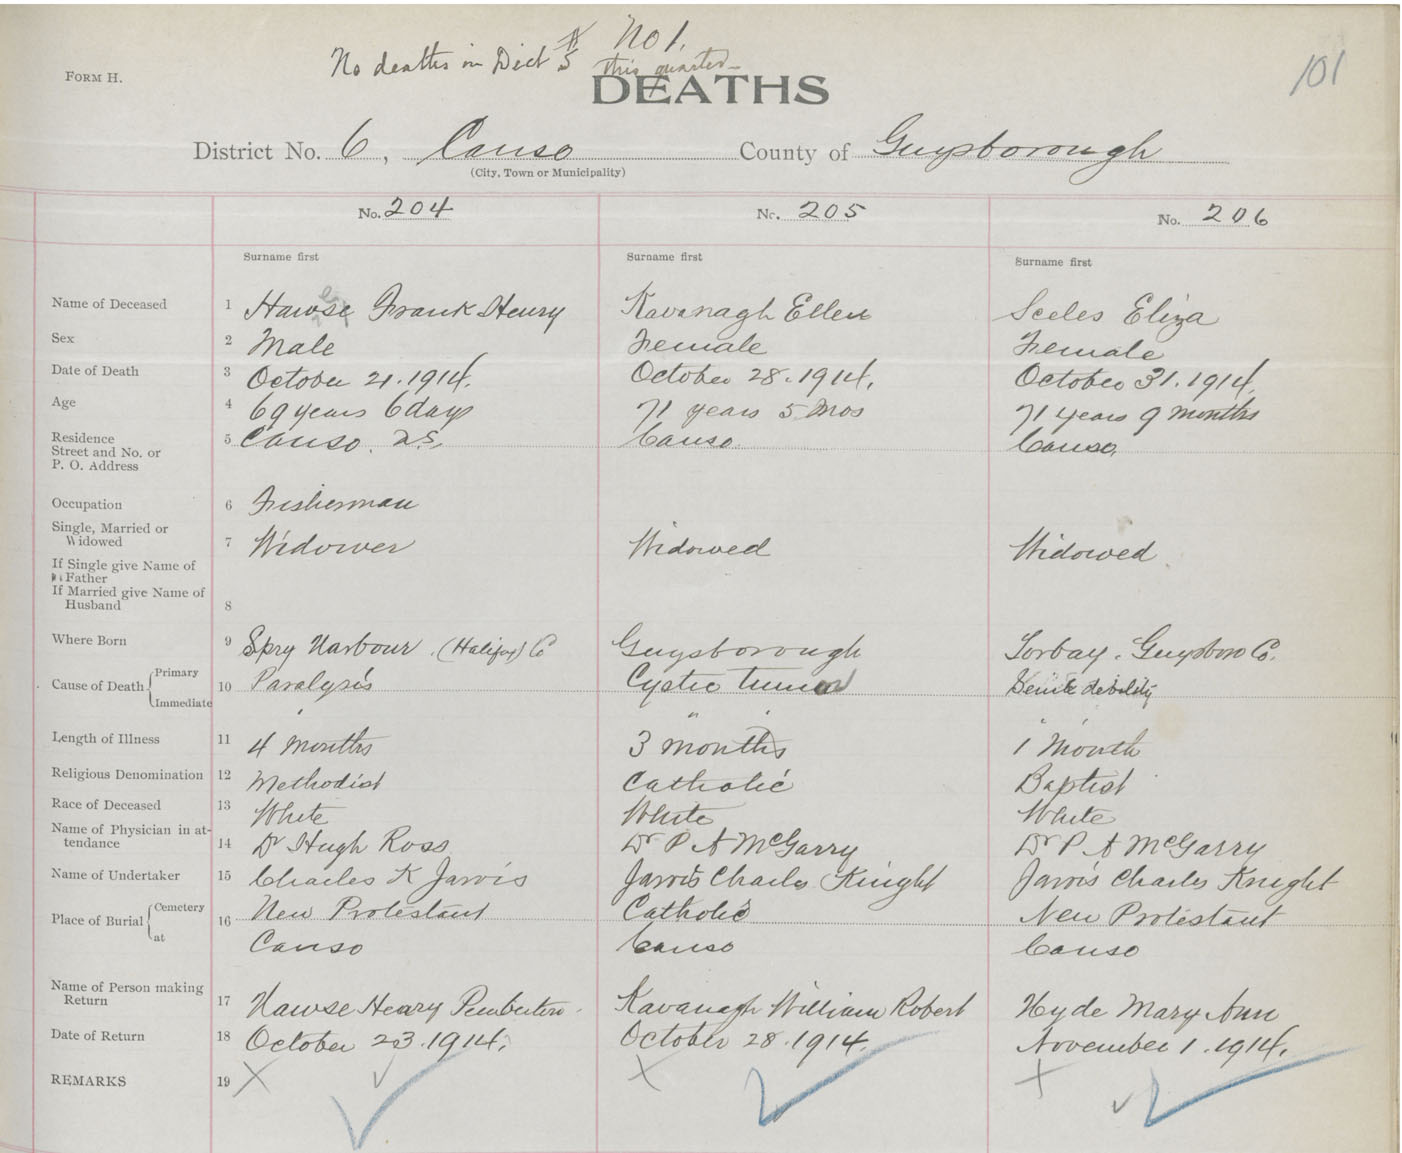 No 1.
No deaths in Dist 5 this quarter
FORM H.
101
DEATHS
District No. 6, Canso County of Guysborough
(City, Town or Municipality)
No. 204 No. 205 No. 206
Surname first Surname first Surname first
Name of Deceased 1 Hawse Frank Henry Kavanagh Ellen Sceles Eliza
Sex 2 Male Female Female
Date of Death 3 October 21. 1914. October 28. 1914. October 31. 1914.
Age 4 69 years 6 days 71 years 5 mos 71 years 9 months
Residence
Street and No. or
P. O. Address
5 Canso. Canso Canso.
Occupation 6 Fisherman
Single, Married or
Widowed 7 Widower Widowed Widowed
If Single give Name of
Father
If Married give Name of
Husband 8
Where Born 9 Spry Harbour. (Halifax) Co Guysborough Torbay. Guysboro Co.
Cause of Death { Primary
Immediate
10 Paralysis Cystic tumor Senile debility
Length of Illness 11 4 months 3 months 1 month
Religious Denomination 12 Methodist Catholic Baptist
Race of Deceased 13 White White White
Name of Physician in at-
tendance 14 Dr Hugh Ross Dr P A McGarry Dr P A McGarry
Name of Undertaker 15 Charles K Jarvis Jarvis Charles Knight Jarvis Charles Knight
Place of Burial { Cemetery
at
16 New Protestant Catholic New Protestant
Canso Canso Canso
Name of Person making
Return 17 Hawse Henry Pemberton. Kavanagh William Robert Hyde Mary Ann
Date of Return 18 October 23. 1914. October 28. 1914. November 1. 1914.
REMARKS 19 X X X